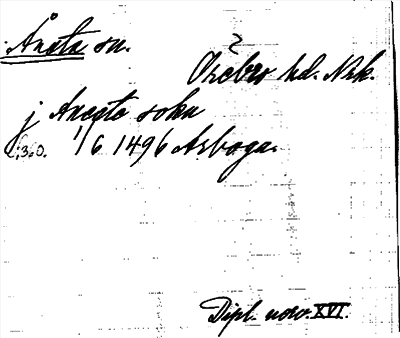 Ånsta sn.
Örebro hd. Nrk.
j Anesta sokn
1/6 1496 Arboga.
Dipl. norv. XVI.